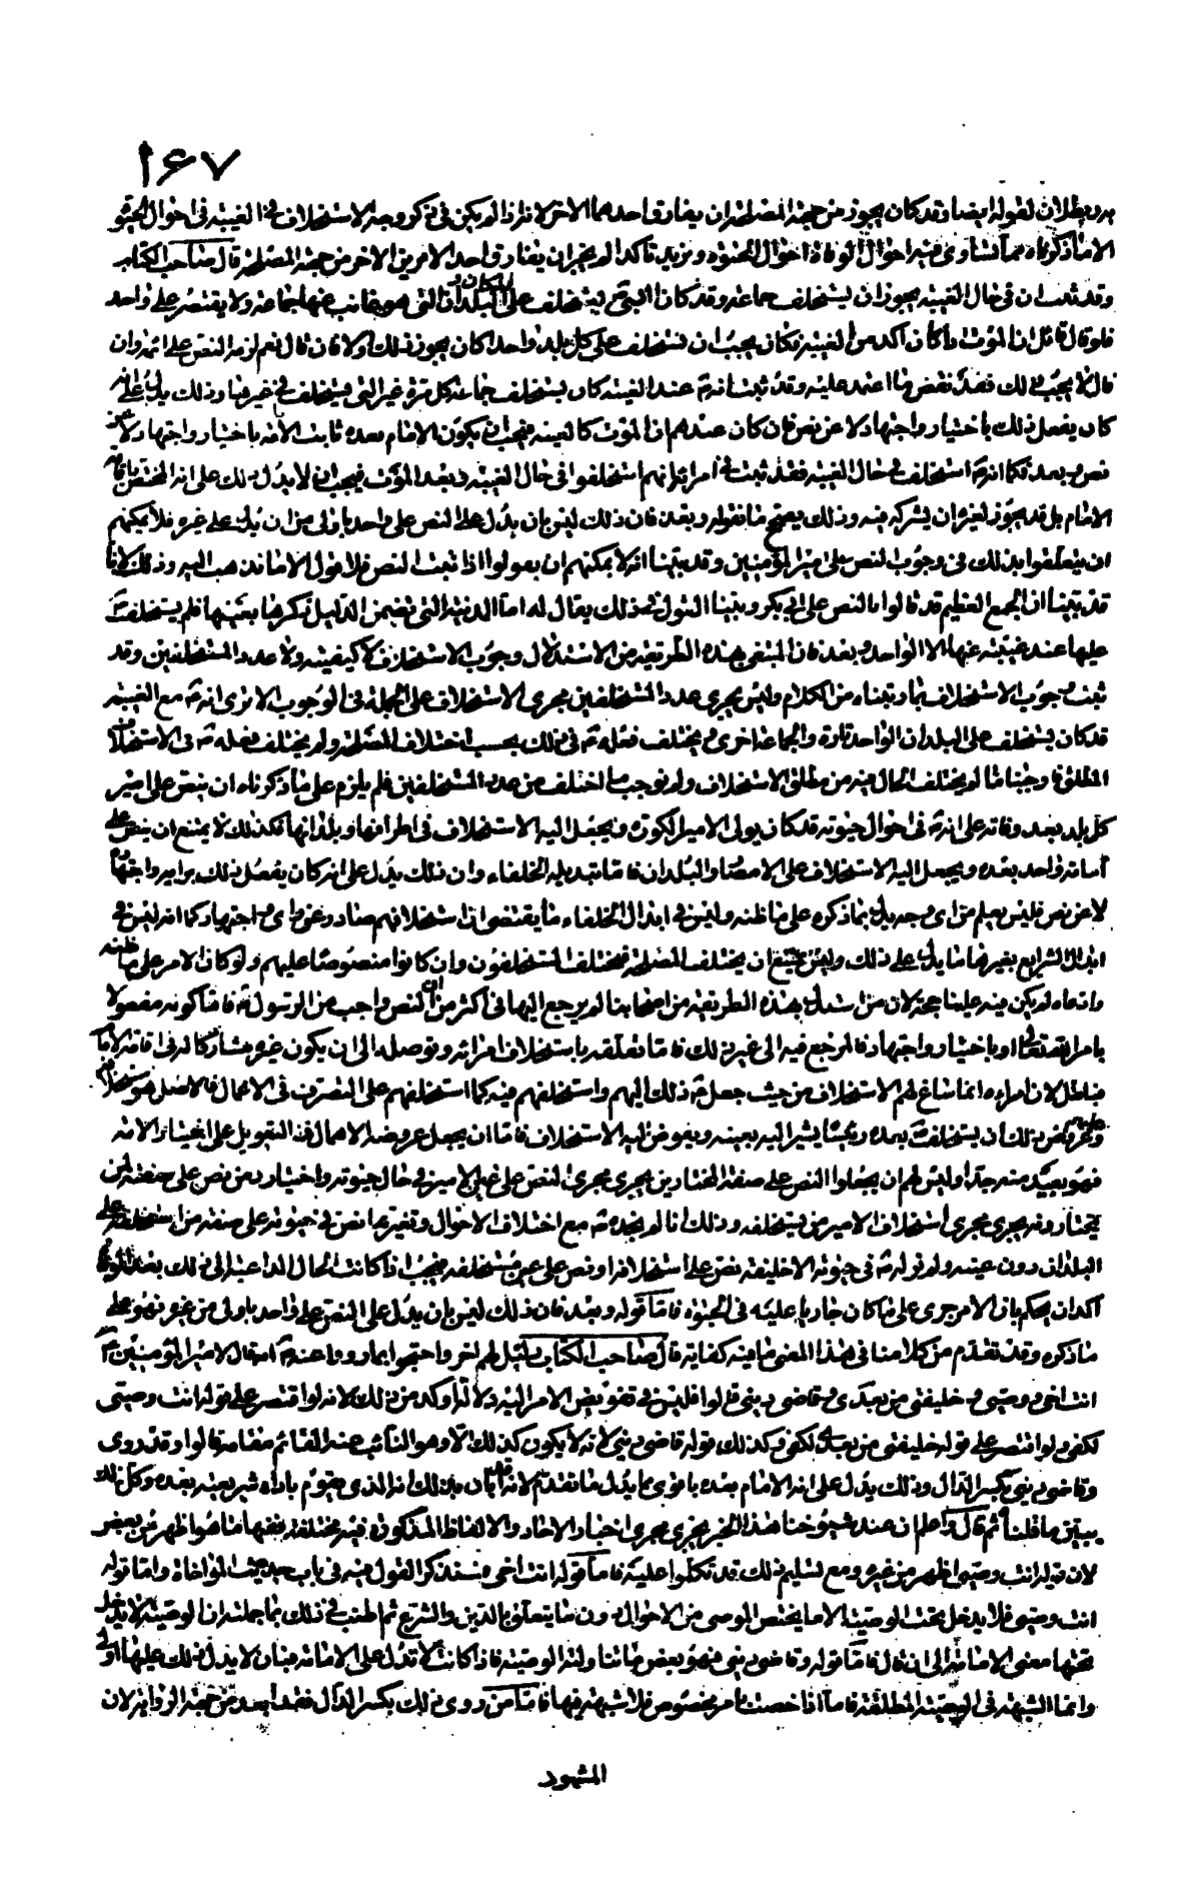 ١٦٧
به وبطلان لقوله ايضا وقد كان يجوز من جهة المصلحة ان يفارق احدهما الاخر لانه اذا لم يكن في ذكر وجه الاستخلاف في الغيبة في احوال الحيوة
الا ما ذكرناه مما تتساوى فيه احوال الوفاة احوال الحيوة ويزيد تاكدا لم يجز ان يفارق احد الامرين الاخر من جهة المصلحة قال صاحب الكتاب
وقد ثبت ان في حال الغيبة يجوز ان يستخلف جماعة وقد كان النبي ع يستخلف على البلدان التي هو غائب عنها جماعة ولا يقتصر على واحد
فلو قال قائل اذا الموت واكان اكد من الغيبة فكان يجب ان يستخلف على كل بلد واحدا كان يجوز ذلك اولا فان قال نعم لزمه النص على ائمة وان
قال لا يجب ذلك فقد نقض ما اعتمد عليه وقد ثبت انه ع عند الغيبة كان يستخلف جماعة كل مرة غير التي يستخلف في غيرها وذلك يدل على انه
كان يفعل ذلك باختيار واجتهاد لا عن نص فان كان عندهم ان الموت كالغيبة فيجب ان يكون الامام بعده ثابت الامامة باختيار واجتهاد لا عن
نص وبعد فكما انه ع استخلف في حال الغيبة فقد ثبت في امرائه انهم استخلفوا في حال الغيبة وبعد الموت فيجب ان لا يدل ذلك على انه المختص باقامة
الامام بل قد يجوز لغيره ان يشركه فيه وذلك يصحح ما نقوله وبعد فان ذلك ليس بان يدل على النص على واحد باولى من ان يدل على غيره فلا يمكنهم
ان يتعلقوا بذلك في وجوب النص على امير المؤمنين وقد بينا انه لا يمكنهم ان يقولوا اذا ثبت النص فلا قول الا ما نذهب اليه وذلك لانا
قد بينا ان الجمع العظيم قد قالوا بالنص على ابي بكر وبينا القول في ذلك يقال له اما الدنية التي تضمن الدليل ذكرها بعينها فلم يستخلف ع
عليها عند غيبته عنها الا الواحد وبعد فان المبتغى بهذه الطريقة من الاستدلال وجوب الاستخلاف لا كيفيته ولا عدد المستخلفين وقد
ثبت وجوب الاستخلاف بما رتبناه من الكلام وليس يجري عدد المستخلفين مجرى الاستخلاف على الجملة في الوجوب الا ترى انه ع مع الغيبة
قد كان يستخلف على البلدان الواحد تارة والجماعة اخرى ويختلف فعله ع في ذلك بحسب اختلاف المصلحة ولم يختلف فعله ع في الاستخلاف
المطلق فاوجبنا ما لم يختلف الحال فيه من مطلق الاستخلاف ولم نوجب ما اختلف من عدد المستخلفين فلم يلزم على ما ذكرناه ان ينص على امير
كل بلد بعد وفاته على انه ع في احوال حيوته قد كان يولى الامير الكورة ويجعل اليه الاستخلاف في اطرافها وبلدانها فكذلك لا يمتنع ان ينص على
امامة واحد بعده ويجعل اليه الاستخلاف على الامصار والبلدان فاما تبديله الخلفاء وان ذلك يدل على انه كان يفعل ذلك براي واجتهاد
لا عن نص فليس يعلم من اي وجه يدل بما ذكره على ما ظنه وليس في ابدال الخلفاء ما يقتضي ان استخلافهم صادر عن راي واجتهاد كما انه ليس في
ابدال الشرايع بغيرها ما يدل على ذلك وليس يمتنع ان يختلف المصلحة فيختلف المستخلفون وان كانوا منصوصا عليهم ولو كان الامر على ما ظنه
وادعاه لم يكن فيه علينا حجة لان من استدل بهذه الطريقة من اصحابنا لم يرجع اليها في اكثر من ان النص واجب من الرسول ع فاما كونه مفعولا
بامر الله تعالى او باختيار واجتهاد فالمرجع فيه الى غير ذلك فاما تعلقه باستخلاف امرائه وتوصله الى ان يكون غيره مشاركا له في اقامة الامام
فباطل لان امراءه انما ساغ لهم الاستخلاف من حيث جعل ع ذلك اليهم واستخلفهم فيه كما استخلفهم على التصرف في الاعمال فالاصل هو استخلافه
ذلك ان يستخلف ع بعده رئيسا يشير اليه بعينه ويفوض اليه الاستخلاف فاما ان يجعل عروضه الاهمال فى التعويل على اختيار الامة
فهو بعيد منه جدا وليس لهم ان يجعلوا النص على صفة المختارين يجري مجرى النص على عين الامير في حال حيوته واختياره من نص على صفته لمن
يختارونه يجري مجرى استخلاف الامير من يستخلفه وذلك انا لم نجده ع مع اختلاف الاحوال وتغيرها نص في حيوته على صفة من استخلفه على
البلدان دون عينه ولم نر له ع في حيوته الا خليفة نص على استخلافه او نص على عين مستخلفه فيجب اذا كانت الحال الداعية الى ذلك بعد الوفاة
اكد ان يحكم بان الامر جرى على ما كان جاريا عليه في الحيوة فاما قوله وبعد فان ذلك ليس بان يدل على النص على واحد باولى من غيره فهو على
ما ذكره وقد تقدم من كلامنا في هذا المعنى ما فيه كفاية قال صاحب الكتاب دليل لهم اخر واحتجوا بما رووا عنه ع انه قال لامير المؤمنين ع
انت اخي ووصيي وخليفتي من بعدي وقاضي ديني قالوا فليس في تفويض الامر اليه دلالة اوكد من ذلك لانه لو اقتصر على قوله انت وصيي
لكفى ولو اقتصر على قوله خليفتي من بعدي لكفى وكذلك قوله قاضي ديني لانه لا يكون كذلك الا وهو النائب عنه القائم مقامه قالوا وقد روى
وقاضي ديني بكسر الدال وذلك يدل على انه الامام بعده باقوى مما يدل ما تقدم لانه ابان بذلك انه الذي يقوم باداء شريعته بعده وكل ذلك
يبين ما قلناه ثم قال واعلم ان عند شيوخنا هذا الخبر يجري مجرى اخبار الاحاد والالفاظ المذكورة فيه مختلفة ففيها ما هو اظهر من بعض
لان قوله انت وصيي اظهر من غيره ومع تسليم ذلك قد تكلموا عليه فاما قوله انت اخي فسنذكر القول فيه في باب حديث المواخاة واما قوله
انت وصيي فلا يدخل تحت الوصية الا ما يختص الموصي من الاحوال دون ما يتعلق بالدين والشرع ثم اطنب في ذلك بما جملته ان الوصية لا يدخل
تحتها معنى الامامة الى ان قال فاما قوله وقاضي ديني فهو بعض ما تناولته الوصية فاذا كانت لا تدل على الامامة فبان لا يدل ذلك عليها اولى
وانما الشبهة في الوصية المطلقة فاما اذا خصت بامر مخصوص فلا شبهة فيها فاما من روى ذلك بكسر الدال فقد ابعد من جهة الرواية لان
المشهور